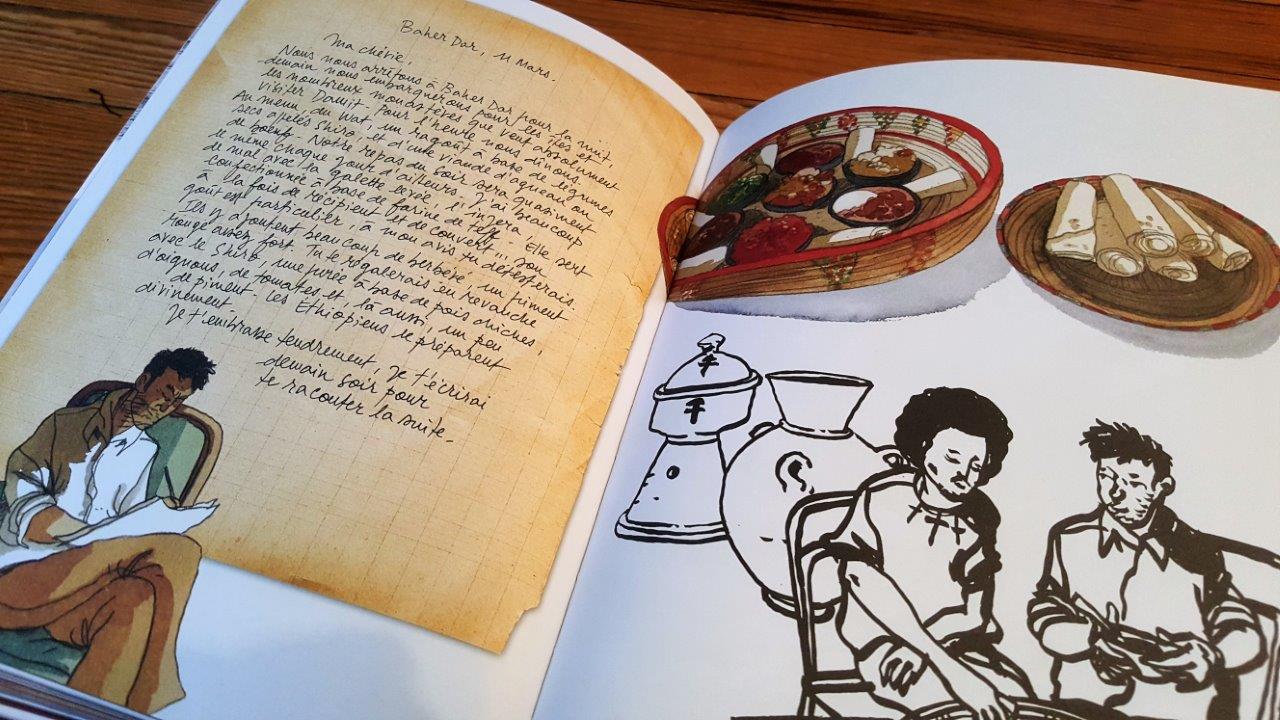 Baher Dar, 11 Mars.
Ma chérie,
Nous nous arrêtons à Baher Dar pour la nuit
demain nous embarquerons pour les îles et
les nombreux monastères que veut absolument
visiter Dawit. Pour l'heure, nous dînons.
Au menu, du wat, un ragoût à base de légumes
secs appelés shiro, et d'une viande d'agneau ou
de boeuf. Notre repas du soir sera quasiment
le même chaque jour d'ailleurs, j'ai beaucoup
de mal avec la galette locale, l'injera
confectionnée à base de farine de teff. Elle sert
à la fois de récipient et de couvert... son
goût est particulier, à mon avis tu détesterais.
Ils y ajoutent beaucoup de berbéré, un piment
rouge assez fort. Tu te régalerais en revanche
avec le Shiro, une purée à base de pois chiches,
d'oignons, de tomates et, là aussi, un peu
de piment. Les Ethiopiens le préparent
divinement.
Je t'embrasse tendrement, je t'écrirai
demain soir pour
te raconter la suite.